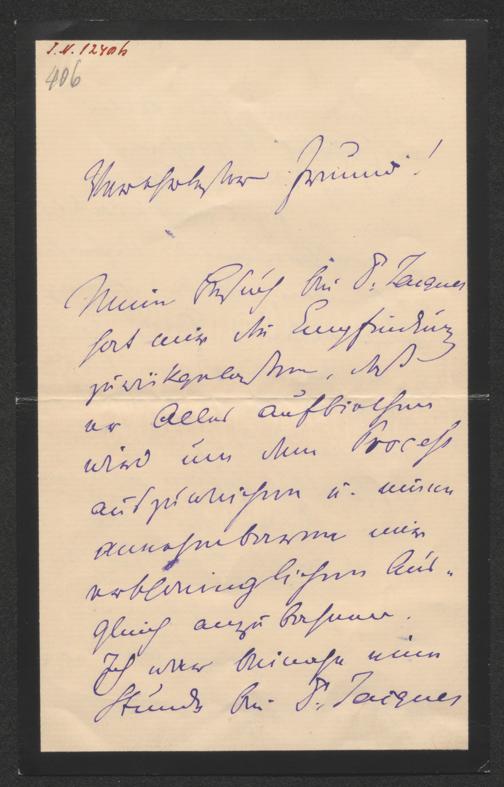 I.N. 12406
406
Verehrtester Freund!
Mein Besuch bei P. Jacques
hat mir die Empfindung
zurückgelassen, daß
er Alles aufbiethen
wird um dem Process
auszuweichen u. einen
annehmbaren mir
Aus-
gleich anzubahnen.
Ich war beinahe eine
Stunde bei P. Jacques